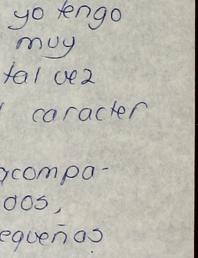 yo tengo
muy
tal vez
caracter
acompa-
dos,
equeñas